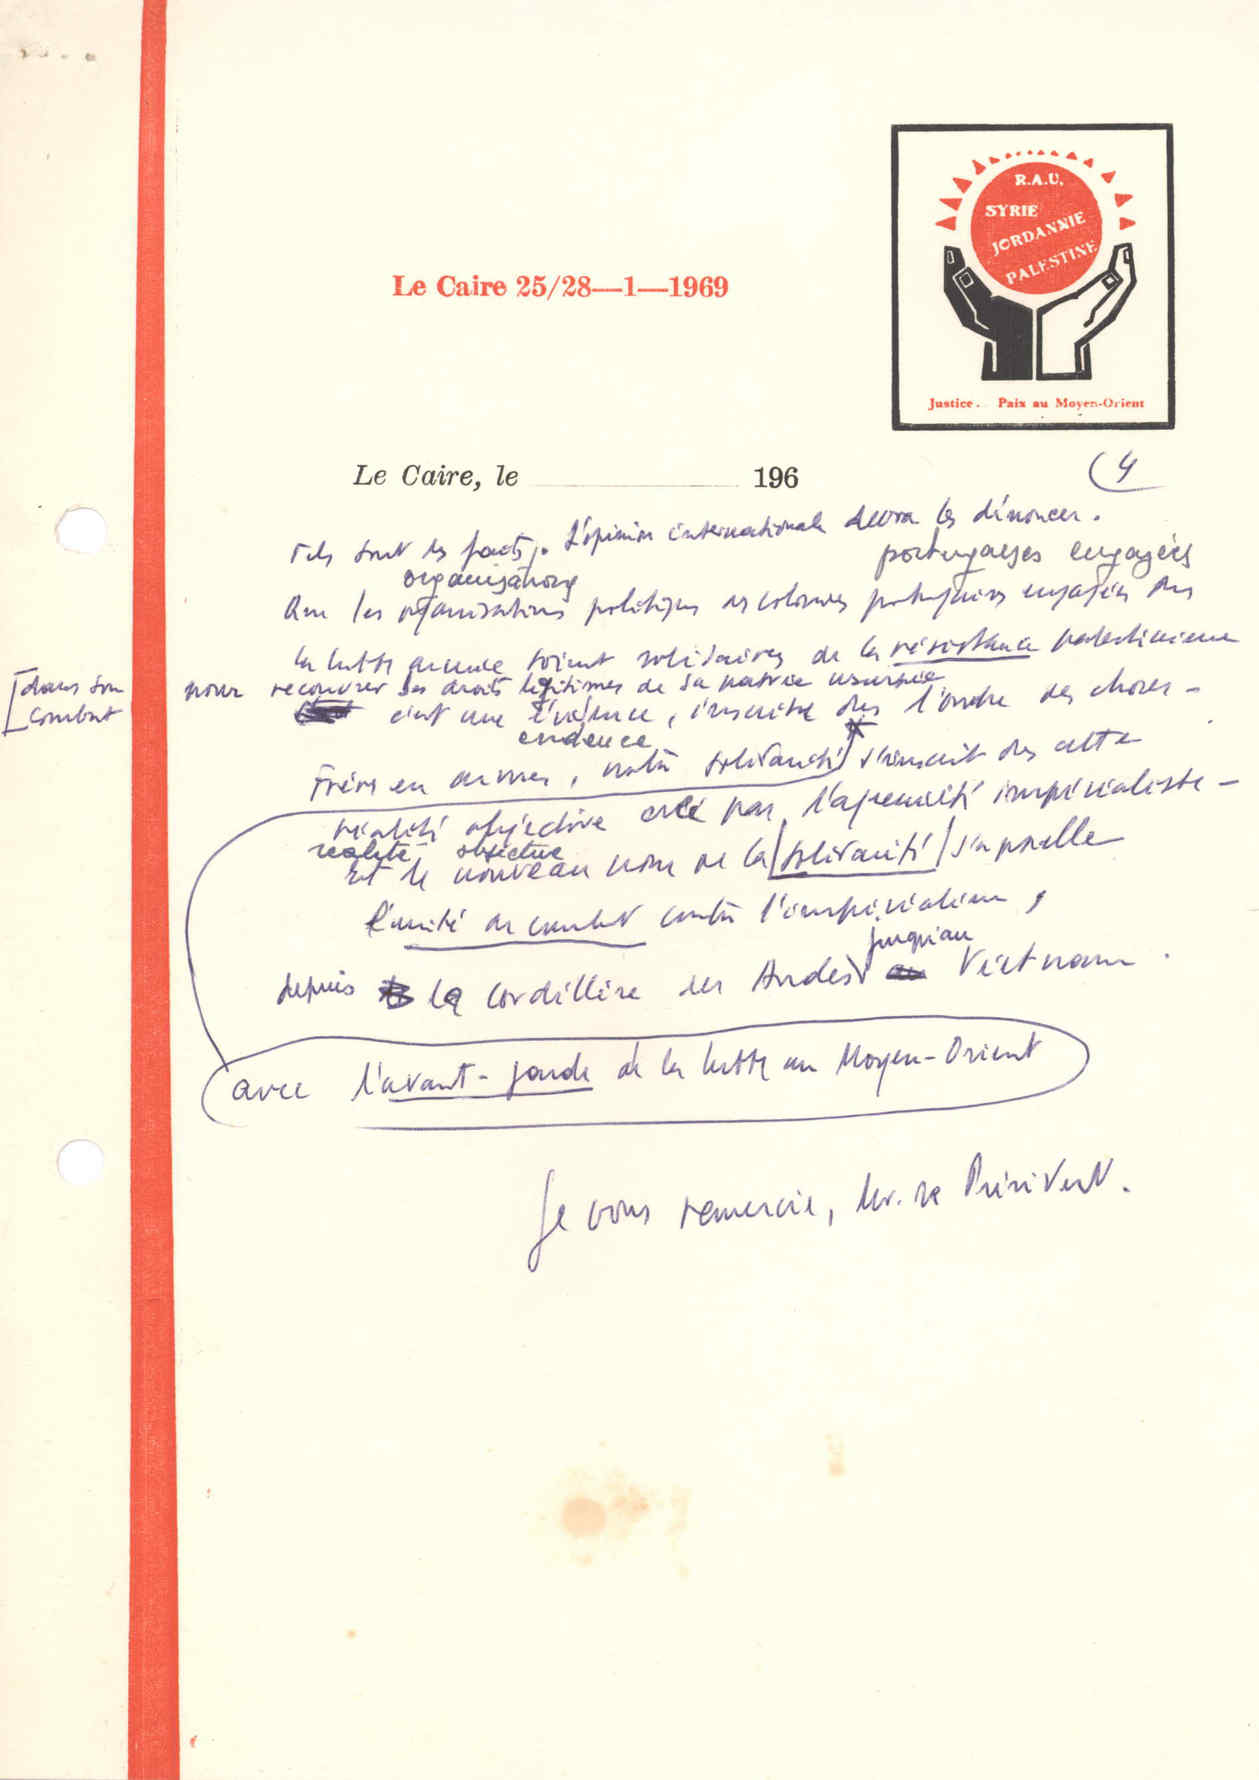 R.A.U.
SYRIE
JORDANNIE
PALESTINE
Le Caire 25/28—1—1969
Justice. Paix au Moyen-Orient
Le Caire, le 196
(4
Tels sont les faits. L'opinion internationale devra les dénoncer.
portugaises engagées
organisations
Que les organisations politiques des colonies portugaises engagées dans
la lutte armée soient solidaires de la résistance palestinienne
[dans son
combat
pour recouvrer ses droits légitimes de sa patrie usurpée
c'est une évidence, inscrite dans l'ordre des choses -
evidence
Frères en armes, notre solidarité s'inscrit dans cette
réalité objective créé par l'agressivité impérialiste -
realité objective
Et le nouveau nom de la solidarité s'appelle
l'unité de combat contre l'impérialisme,
jusqu'au
depuis la Cordillère des Andes Vietnam.
avec l'avant-garde de la lutte au Moyen-Orient
Je vous remercie, Mr. le Président.